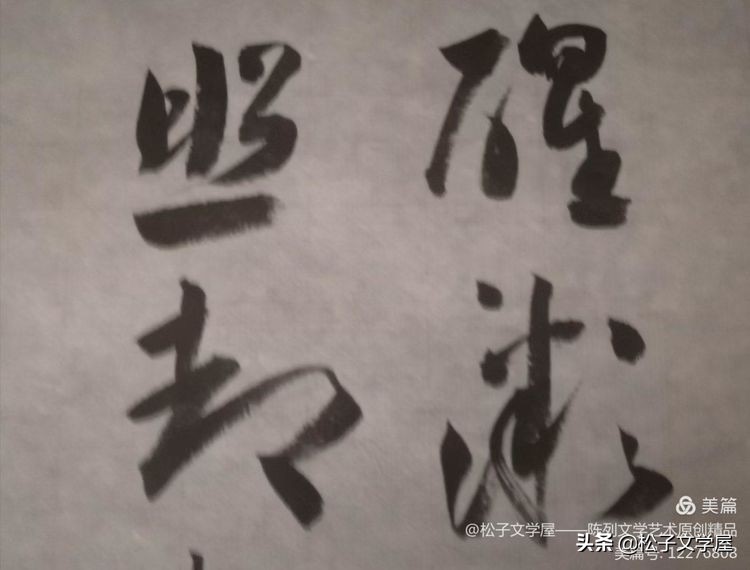 醒愁
照却
美篇
@松子文学屋——陈列文学艺术原创精品
头条 @松子文学屋